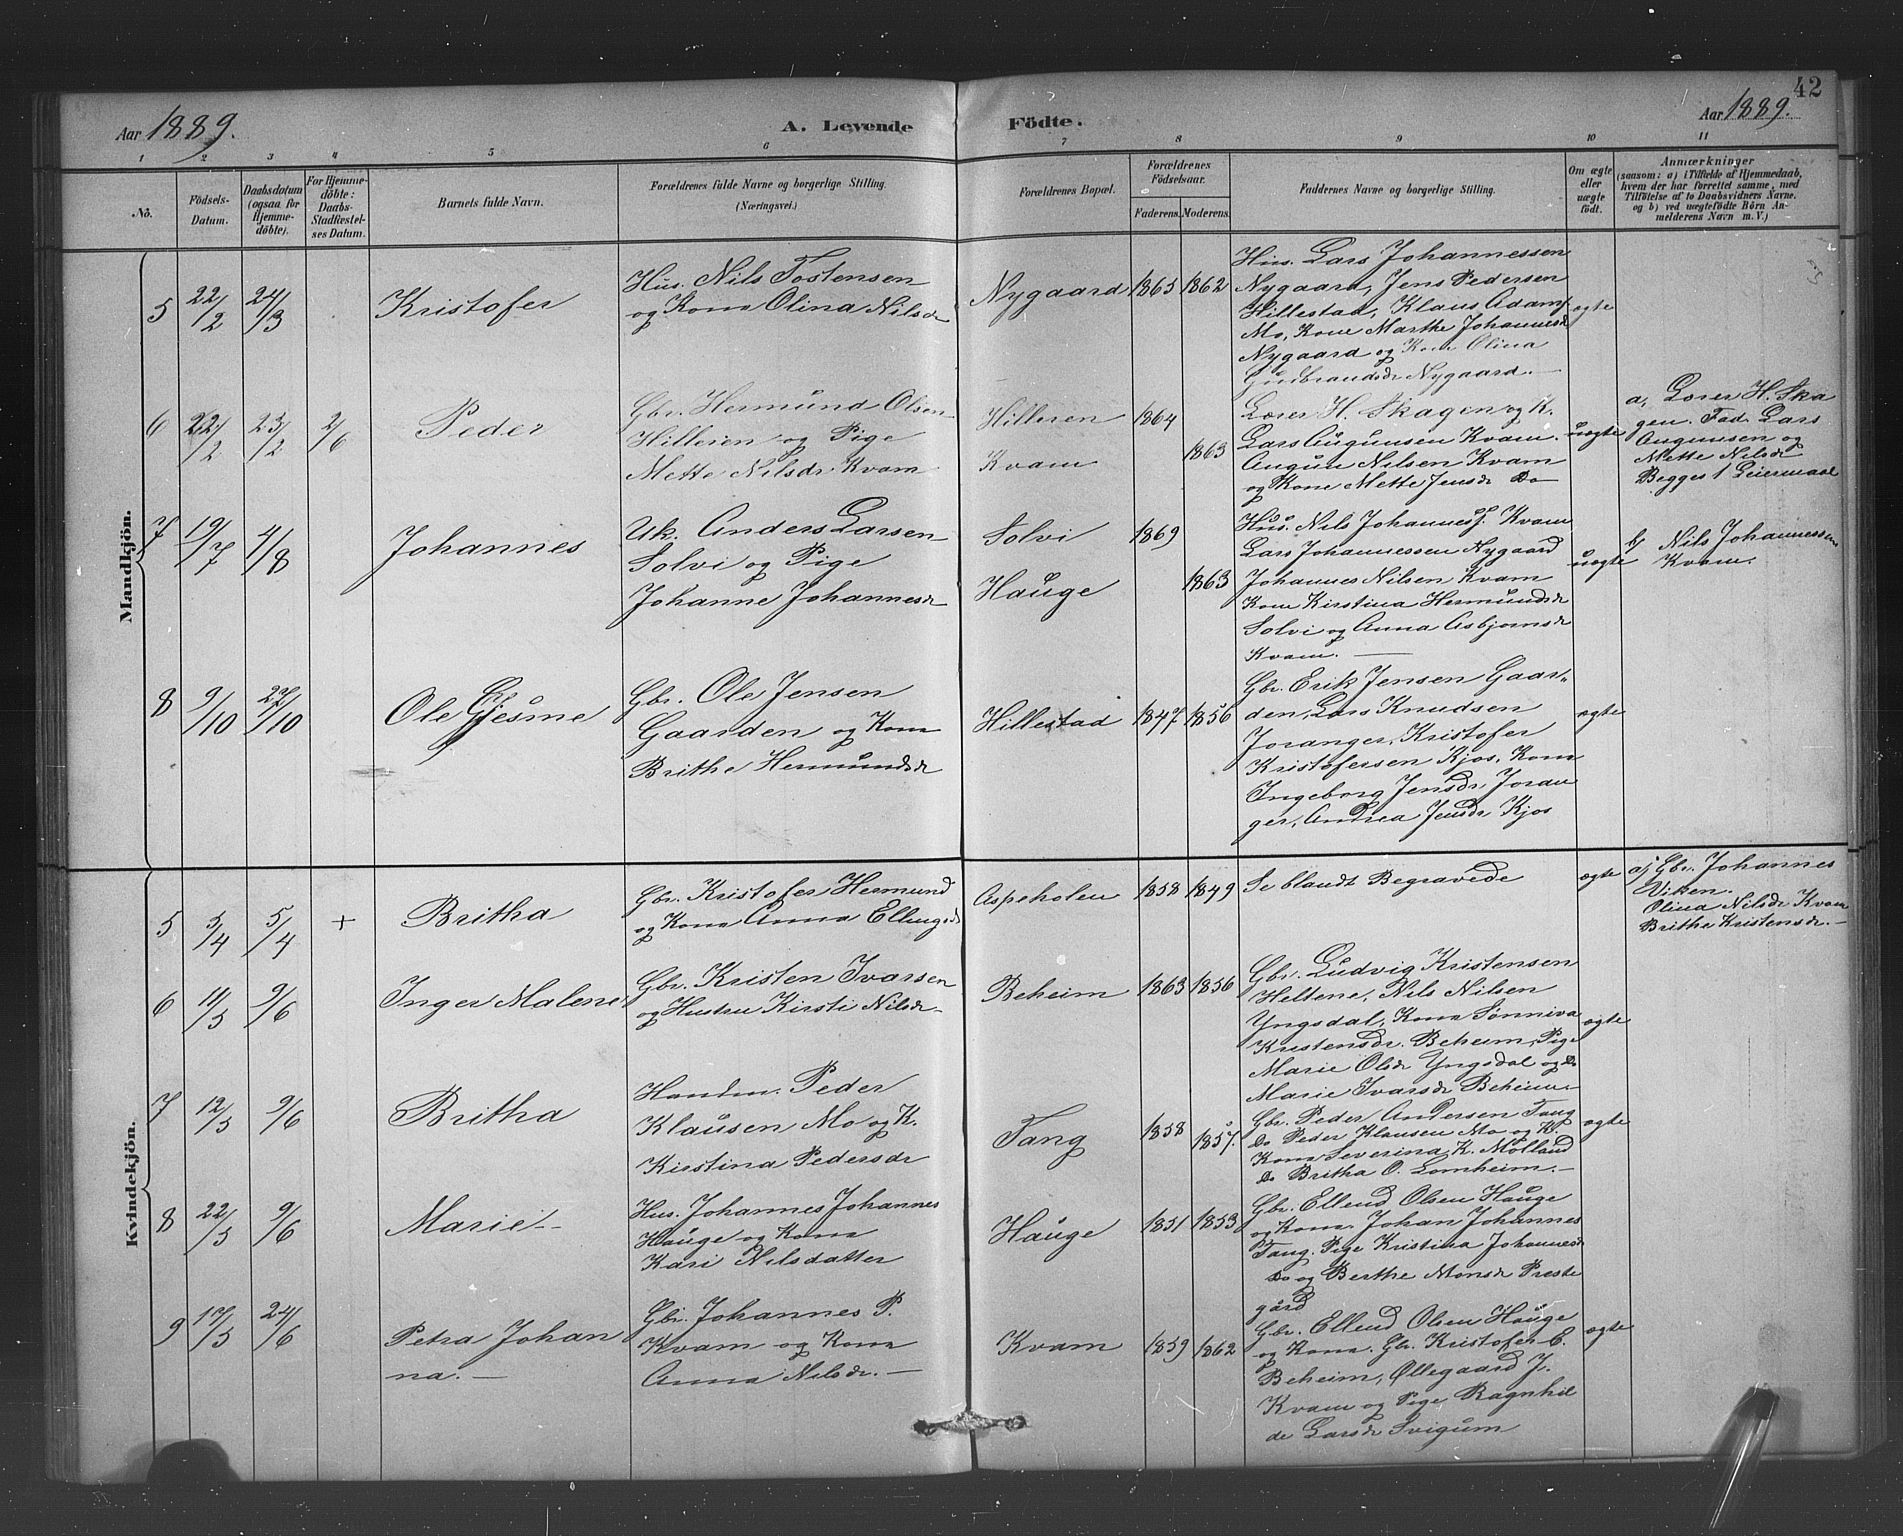 42
Aar 1889.
A. Levende Födte.
Aar 1889.
1 2 3 4 5 6 7 8 9 10 11
No.
Födsels-
Datum.
Daabsdatum
(ogsaa for
Hjemme-
döbte).
For Hjemme-
döbte:
Daabs-
Stadfæstel-
ses Datum.
Barnets fulde Navn.
Forældrenes fulde Navne og borgerlige Stilling.
(Næringsvei.)
Forældrenes Bopæl.
Forældrenes
Födselsaar.
Faderens. Moderens.
Faddernes Navne og borgerlige Stilling.
Om ægte
eller
uægte
födt.
Anmærkninger
(saasom: a) i Tilfælde af Hjemmedaab,
hvem der har forrettet samme, med
Tilföielse af to Daabsvidners Navne.
og b) ved uægtefödte Börn An-
melderens Navn m. V.)
Mandkjön.
5 22/2 24/3 Kristofer
Hus. Nils Tostensen
og Kona Olina Nilsdr
Nygaard 1865 1862
Hus. Lars Johannessen
Nygaard, Jens Pedersen
Hillestad, Klaus Adamf.
Mo, Kone Marthe Johannesdr
Nygaard og Kone Olina
Gudbrandsdr Nygaard. —
ægte
6 22/2 23/2 2/6 Peder
Gbr. Hermund Olsen
Hilleren og Pige
Mette Nilsdr Kvam
Hilleren 1864
Kvam 1863
Lærer H. Skagen og K.
Lars Augunsen Kvam.
Augun Nilsen Kvam
og Kone Mette Jensdr Do
uægte
a, Lærer H. Ska
gen. Fad. Lars
Augunsen og
Mette Nilsdr
Begges 1 Leiermaal
7 19/7 4/8 Johannes
Uk. Anders Larsen
Solvi og Pige
Johanne Johannesdr
Solvi 1869
Hauge 1863
Hus. Nils Johannesf. Kvam
Lars Johannessen Nygaard
Johannes Nilsen Kvam
Kone Kirstina Hermundsdr
Solvi og Anna Asbjørnsdr
Kvam. —
uægte
b, Nils Johannessen
Kvam.
8 9/10 27/10 Ole Gjesme
Gbr. Ole Jensen
Gaarden og Kona
Brithe Hermundsdr
Hillestad 1847 1856
Gbr. Erik Jensen Gaar-
den, Lars Knudsen
Joranger, Kristofer
Kristofersen Kjos, Kona
Ingeborg Jensdr Joran
ger, Andrea Jensdr Kjos
ægte
Kvindekjön.
5 5/4 5/4 + Britha
Gbr. Kristofer Hermund
og Kona Anna Ellingsdr
Aspeholen 1858 1849
Se blandt Begravede
ægte
a) Gbr. Johannes
Viken.
Olina Nilsdr Kvam
Brithe Kristensdr. —
6 11/5 9/6 Inger Malene
Gbr. Kristen Ivarsen
og Hustru Kirsti Nilsdr
Beheim 1863 1856
Gbr. Ludvig Kristensen
Heltene, Nils Nilsen
Yngsdal, Kona Sønniva
Kristensdr. Beheim, Pige
Marie Olsdr Yngsdal og Do
Marie Ivarsdr Beheim
ægte
7 12/5 9/6 Britha
Handm. Peder
Klausen Mo og K.
Kirstina Pedersdr
Tang 1858 1857.
Gbr. Peder Andersen Tang
Do Peder Klausen Mo og K.
Kona Severina K. Molland
Do Britha O. Lomheim. —
ægte
8 22/5 9/6 Marie —
Hus. Johannes Johannes
Hauge og Kona
Kari Nilsdatter
Hauge 1851 1853
Gbr. Ellend Olsen Hauge
og Kona. Johan Johannes
Tang. Pige Kristina Johannesdr
Do og Berthe Monsdr Preste
gård
9 17/5 24/6 Petra Johan
na. —
Gbr. Johannes P.
Kvam og Kona
Anna Nilsdr. —
Kvam 1859 1862
Gbr. Ellend Olsen Hauge
og Kona. Gbr. Kristofer E.
Beheim, Ollegaard J.
Kvam og Pige Ragnhil
de Larsdr Svigum
ægte